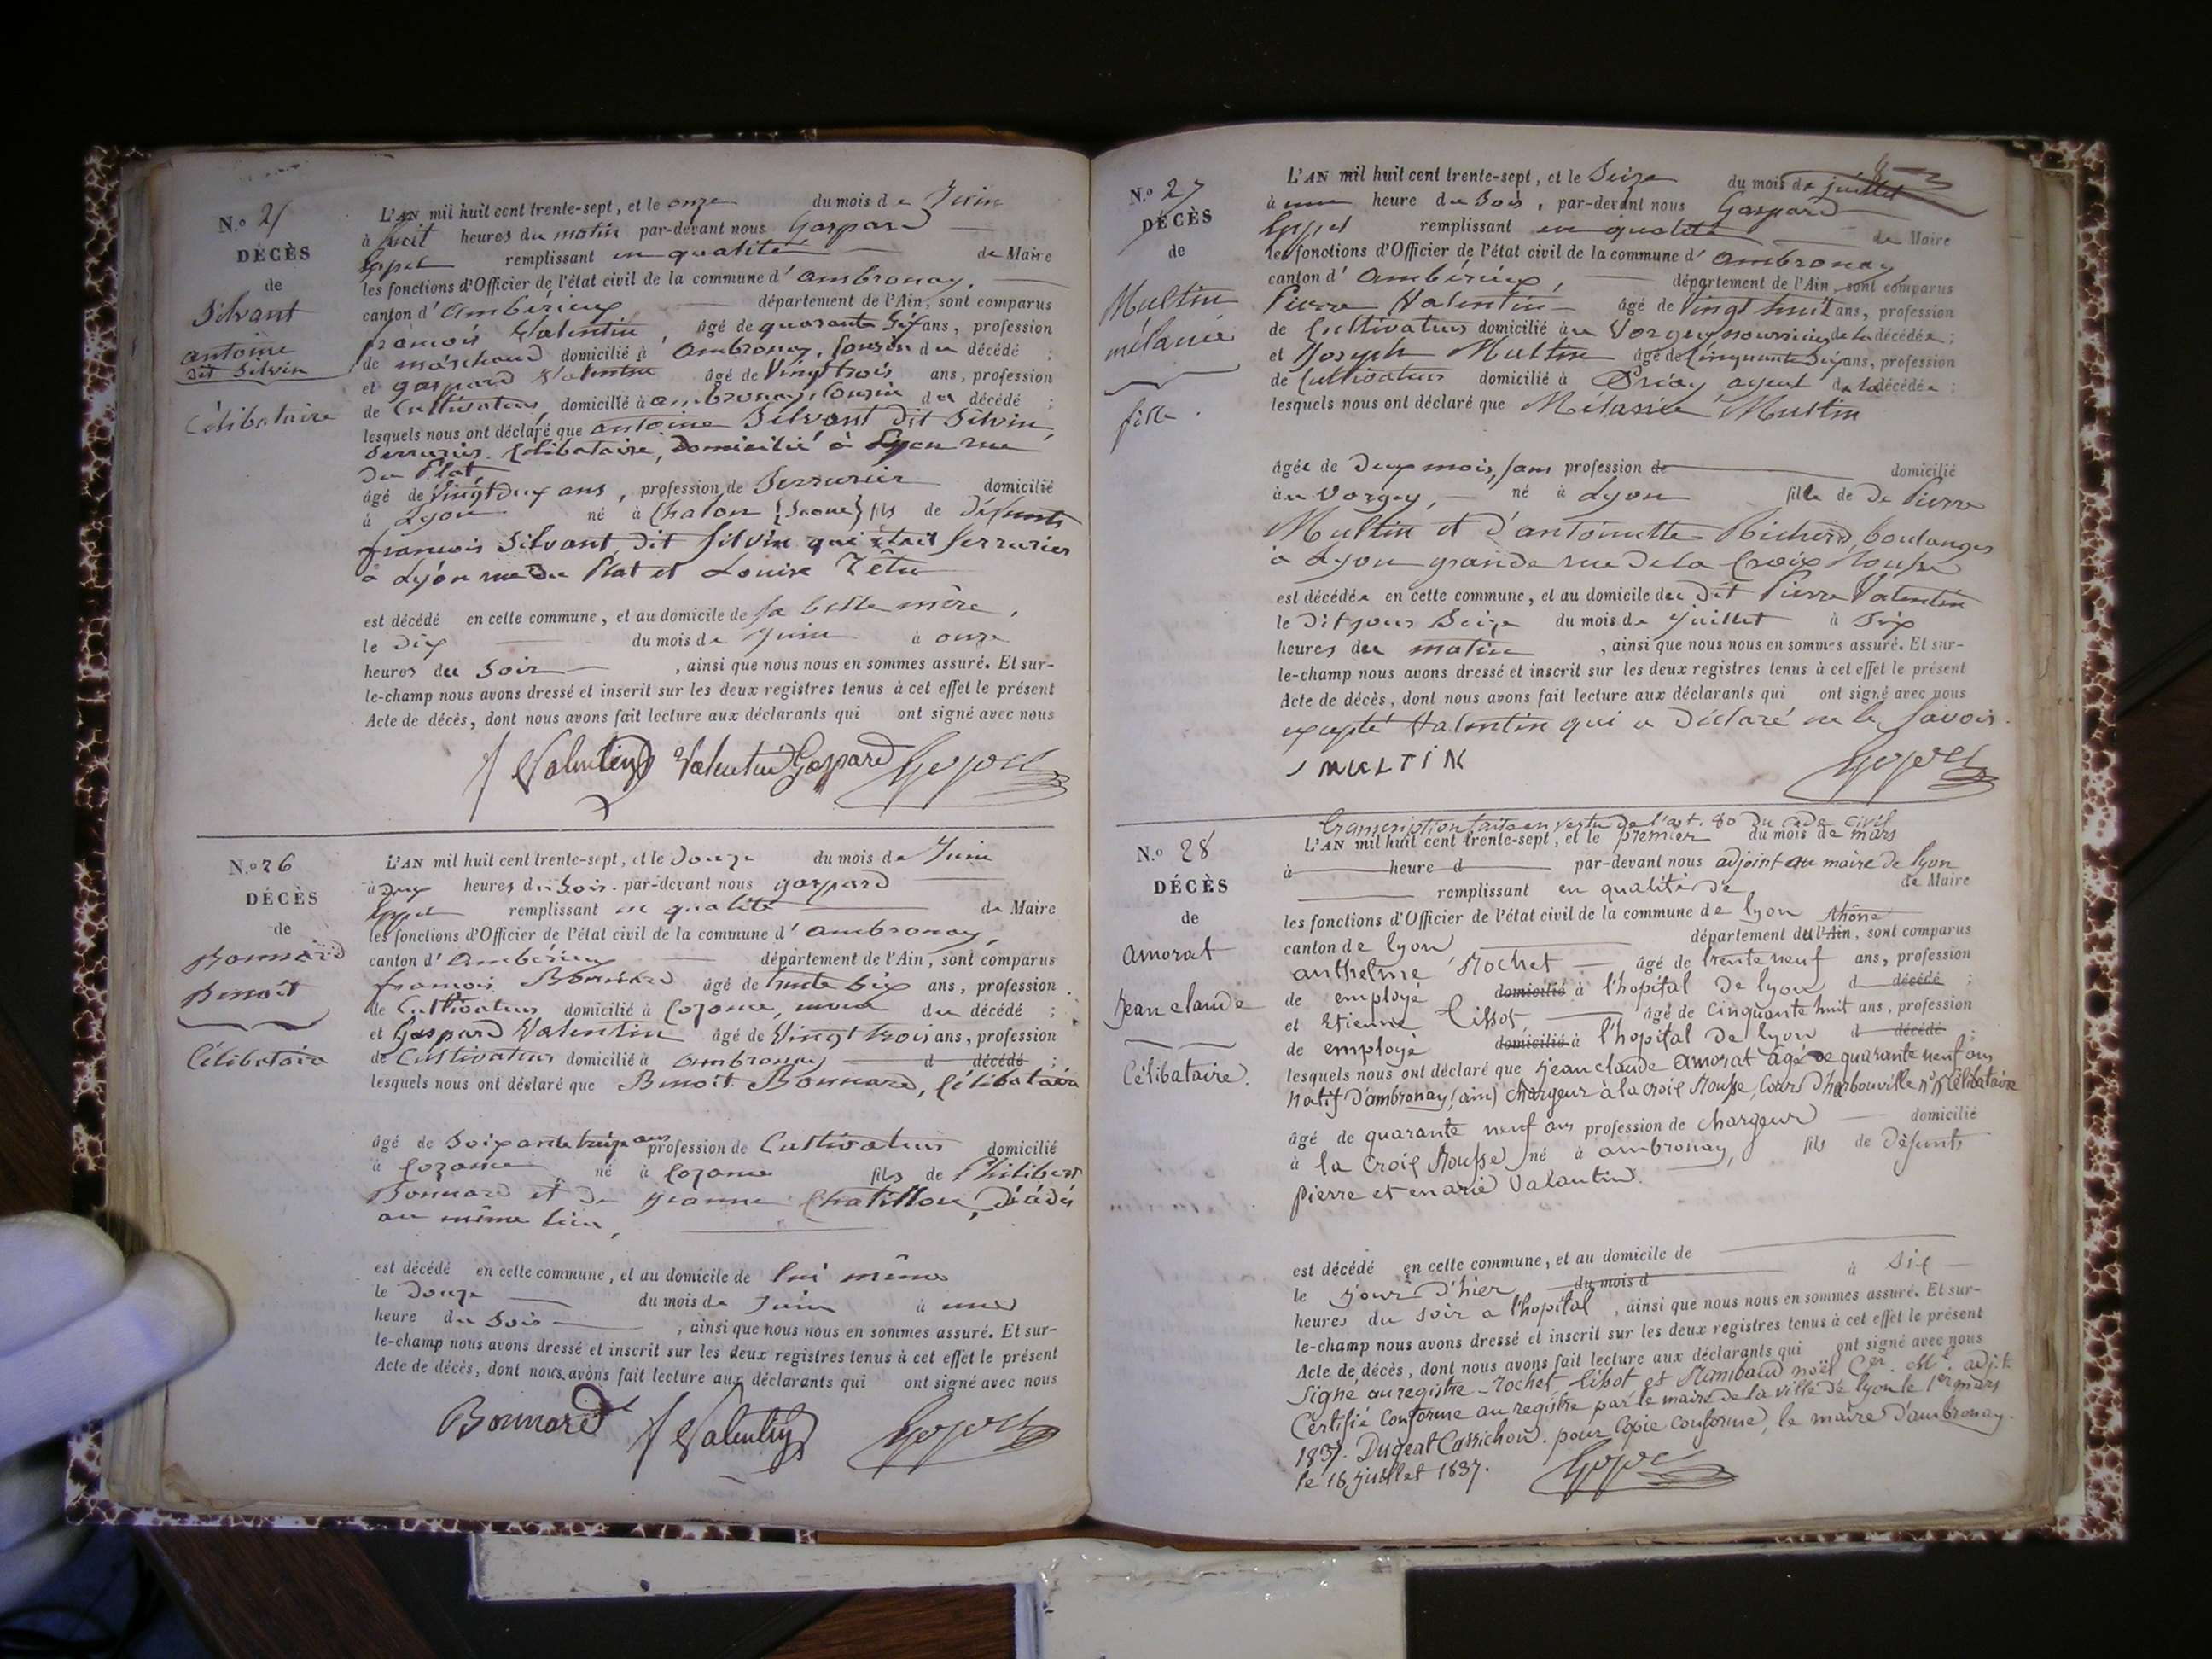 N.o 25
DÉCÈS
de
Silvant
antoine
dit Silvin
Célibataire
L'AN mil huit cent trente-sept, et le onze du mois de Juin
à huit heures du matin par-devant nous Gaspard
remplissant en qualité de Maire
les fonctions d'Officier de l'état civil de la commune d' ambronay,
canton d' Ambérieux département de l'Ain, sont comparus
françois Valentin, âgé de quarante six ans, profession
de marchand domicilié à Ambronay, cousin du décédé ;
et gaspard Valentin âgé de Vingt trois ans, profession
de Cultivateur domicilié à ambronay, Cousin du décédé ;
lesquels nous ont déclaré que antoine Silvant dit Silvin,
Serrurier Célibataire, Domicilié à Lyon rue
du Plat,
âgé de Vingt deux ans, profession de Serrurier domicilié
à Lyon né à Chalon (Saone) fils de défunts
françois Silvant dit Silvin qui était Serrurier
à Lyon rue du Plat et Louise Têtu
est décédé en cette commune, et au domicile de sa belle mère,
le dix du mois de Juin à onze
heures du Soir, ainsi que nous nous en sommes assuré. Et sur-
le-champ nous avons dressé et inscrit sur les deux registres tenus à cet effet le présent
Acte de décès, dont nous avons fait lecture aux déclarants qui ont signé avec nous
f Valentin Valentin Gaspard
N.o 26
DÉCÈS
de
Bonnard
Benoît
Célibataire
L'AN mil huit cent trente-sept, et le Douze du mois de Juin
à deux heures du Soir par-devant nous gaspard
remplissant en qualité de Maire
les fonctions d'Officier de l'état civil de la commune d' ambronay,
canton d' Ambérieux département de l'Ain, sont comparus
françois Bonnard âgé de trente Six ans, profession
de Cultivateur domicilié à Cozance, neveu du décédé ;
et Gaspard Valentin âgé de Vingt trois ans, profession
de Cultivateur domicilié à ambronay d décédé ;
lesquels nous ont déclaré que Benoît Bonnard, Célibataire
âgé de Soixante treize ans profession de Cultivateur domicilié
à Cozance né à Cozance fils de Philibert
Bonnard et de Jeanne Chatillon, Décédés
au même lieu,
est décédé en cette commune, et au domicile de lui même
le Douze du mois de Juin à une
heure du Soir, ainsi que nous nous en sommes assuré. Et sur-
le-champ nous avons dressé et inscrit sur les deux registres tenus à cet effet le présent
Acte de décès, dont nous avons fait lecture aux déclarants qui ont signé avec nous
Bonnard f Valentin
N.o 27
DÉCÈS
de
Multin
mélanie
fille
L'AN mil huit cent trente-sept, et le Seize du mois de juillet
à une heure du Soir, par-devant nous Gaspard
remplissant en qualité de Maire
les fonctions d'Officier de l'état civil de la commune d' ambronay
canton d' Ambérieux, département de l'Ain, sont comparus
Pierre Valentin âgé de Vingt huit ans, profession
de Cultivateur domicilié au Vorgey, nourricier de la décédée ;
et Joseph Multin âgé de Cinquante Six ans, profession
de Cultivateur domicilié à Priay ayeul de la décédée ;
lesquels nous ont déclaré que Mélanie Multin
âgée de Deux mois, sans profession de domicilié
au Vorgey, né à Lyon fille de De Pierre
Multin et d'antoinette Richerd, boulanger
à Lyon grande rue de la Croix Rousse
est décédée en cette commune, et au domicile du dit Pierre Valentin
le Dit jour Seize du mois de Juillet à Six
heures du matin, ainsi que nous nous en sommes assuré. Et sur-
le-champ nous avons dressé et inscrit sur les deux registres tenus à cet effet le présent
Acte de décès, dont nous avons fait lecture aux déclarants qui ont signé avec nous
excepté Valentin qui a Déclaré ne le Savoir.
J MULTIN
N.o 28
DÉCÈS
de
amorat
Jean claude
Célibataire.
transcription faite en vertu de l'art. 80 Du code Civil
L'AN mil huit cent trente-sept, et le premier du mois de mars
à heure d par-devant nous adjoint au maire de lyon
remplissant en qualité de de Maire
les fonctions d'Officier de l'état civil de la commune de lyon Rhône
canton de lyon département du l'Ain, sont comparus
anthelme Rochet âgé de trente neuf ans, profession
de employé domicilié à l'hopital de lyon d décédé ;
et Etienne Cissot âgé de Cinquante huit ans, profession
de employé domicilié à l'hopital de lyon d décédé ;
lesquels nous ont déclaré que Jean claude amorat âgé de quarante neuf ans
natif d'ambronay (ain) chargeur à la croix Rousse, Cours d'herbouville Célibataire
âgé de quarante neuf ans profession de chargeur domicilié
à la Croix Rousse né à ambronay, fils de Défunts
pierre et marie Valantin.
est décédé en cette commune, et au domicile de
le jour d'hier du mois d à six
heures du soir a l'hopital, ainsi que nous nous en sommes assuré. Et sur-
le-champ nous avons dressé et inscrit sur les deux registres tenus à cet effet le présent
Acte de décès, dont nous avons fait lecture aux déclarants qui ont signé avec nous
Signé au registre Rochet Cissot et Rambaud noël adjt.
Certifié Conforme au registre par le maire de la ville de lyon le 1er mars
1837. pour Copie conforme, le maire d'ambronay.
le 18 juillet 1837.